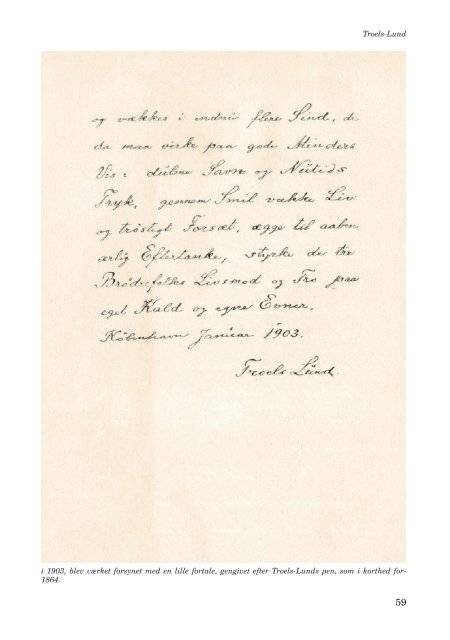 Troels-Lund
og vækkes i endnu flere Sind, de
da maa virke paa gode Minders
Vis: dulme Savn og Nutids
Tryk, gennem Smil vække Liv
og trøstigt Forsæt, ægge til aaben
ærlig Eftertanke, styrke de tre
Brødrefolks Livsmod og Tro paa
eget Kald og egne Evner.
København Januar 1903.
Troels Lund.
i 1903, blev værket forsynet med en lille fortale, gengivet efter Troels-Lunds pen, som i korthed for-
1864.
59